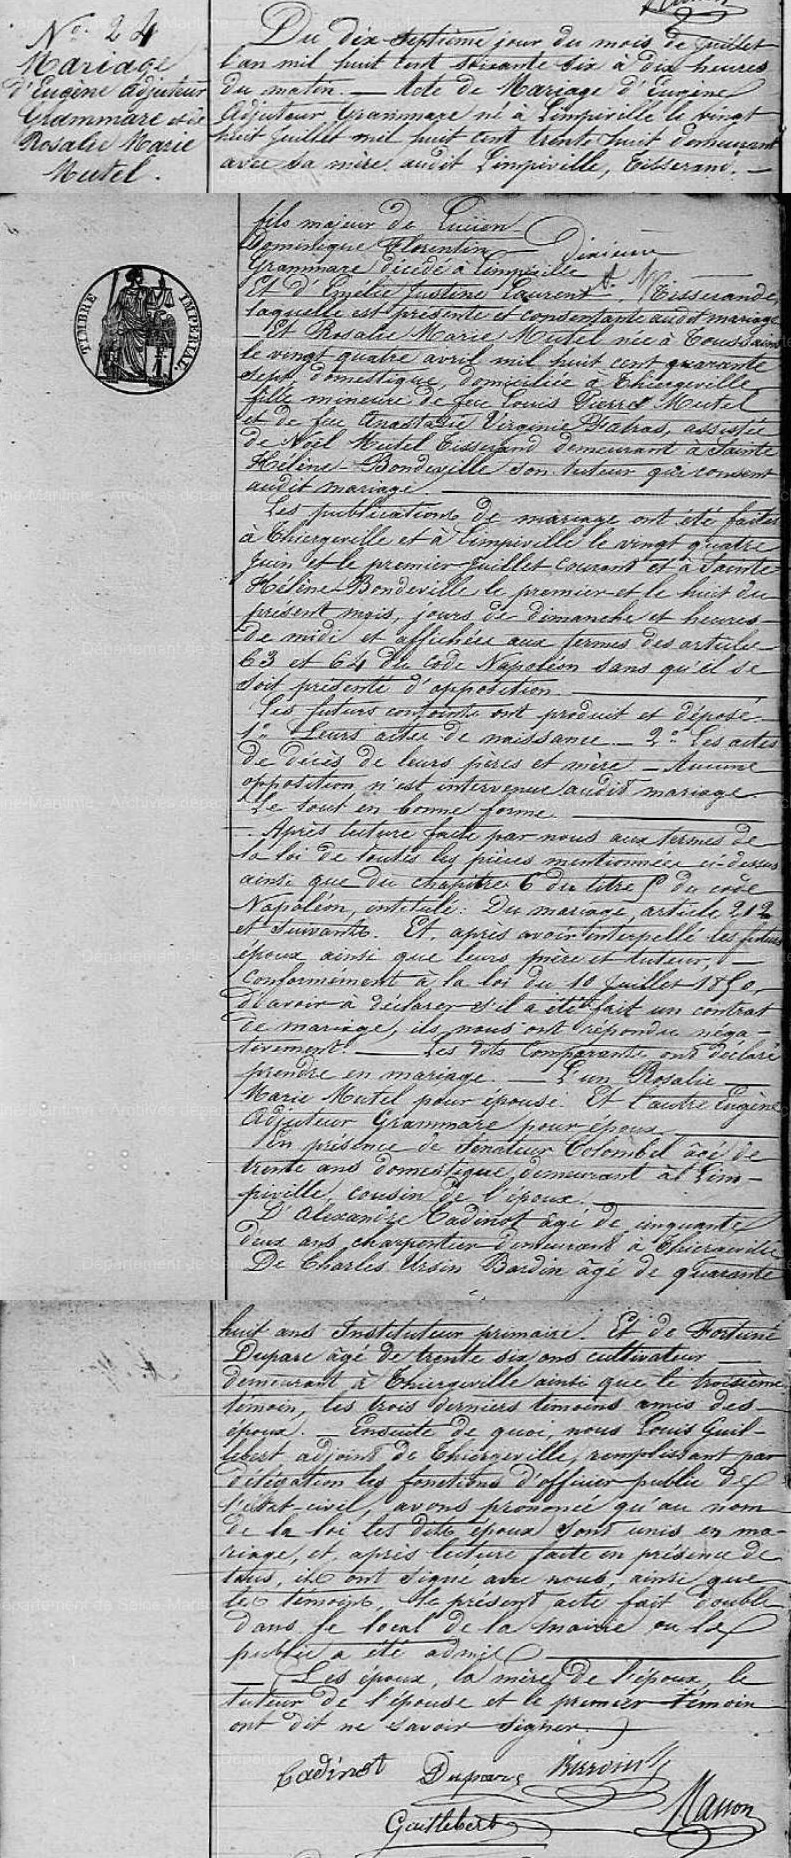 No. 24
Mariage
d'Eugène Adjuteur
Grammare et de
Rosalie Marie
Mutel.
Du dix-septième jour du mois de Juillet
l'an mil huit cent soixante six à dix heures
du matin. — Acte de Mariage d'Eugène
Adjuteur Grammare né à Limpiville le vingt
huit Juillet mil huit cent trente huit demeurant
avec sa mère audit Limpiville, Tisserand. —
fils majeur de Lucien
Dominique Florentin
Grammare décédé à Limpiville
Et d'Emélie Justine Laurent, Tisserande,
laquelle est présente et consentante audit mariage
Et Rosalie Marie Mutel née à Toussaint
le vingt quatre avril mil huit cent quarante
sept, domestique, domiciliée à Thiergeville
fille mineure de feu Louis Pierre Mutel
et de feu Anastasie Virginie, assistée
de Noël Mutel Tisserand demeurant à Sainte
Hélène-Bondeville son tuteur qui consent
audit mariage
Les publications de mariage ont été faites
à Thiergeville et à Limpiville le vingt quatre
Juin et le premier Juillet courant et à Sainte
Hélène-Bondeville le premier et le huit du
présent mois, jours de dimanche et heures
de midi et affichées aux termes des articles
63 et 64 du code Napoléon sans qu'il se
soit présenté d'opposition
Les futurs conjoints ont produit et déposé
1o Leurs actes de naissance — 2o Les actes
de décès de leurs pères et mère — Aucune
opposition n'est intervenue audit mariage
Le tout en bonne forme
Après lecture faite par nous aux termes de
la loi de toutes les pièces mentionnées ci-dessus
ainsi que du chapitre 6 du titre 5 du code
Napoléon, intitulé: Du mariage, article 212
et suivants. Et, après avoir interpellé les futurs
époux ainsi que leurs mère et tuteur, —
conformément à la loi du 10 Juillet 1850,
d'avoir à déclarer s'il a été fait un contrat
de mariage, ils nous ont répondu néga-
tivement. — Les dits Comparants ont déclaré
prendre en mariage — L'un Rosalie —
Marie Mutel pour épouse Et l'autre Eugène
Adjuteur Grammare pour époux
En présence de Sénateur Colombel âgé de
trente ans domestique demeurant à Lim-
piville, cousin de l'époux.
D'Alexandre Cadinot âgé de cinquante
deux ans charpentier demeurant à Thiergeville
De Charles Ursin Bardin âgé de quarante
huit ans Instituteur primaire. Et de Fortuné
Duparc âgé de trente six ans cultivateur
demeurant à Thiergeville ainsi que le troisième
témoin, les trois derniers témoins amis des
époux. — Ensuite de quoi, nous Louis Guil-
lebert adjoint de Thiergeville, remplissant par
délégation les fonctions d'officier public de
l'état-civil, avons prononcé qu'au nom
de la loi les dits époux sont unis en ma-
riage, et, après lecture faite en présence de
tous, ils ont signé avec nous, ainsi que
les témoins, le présent acte fait double
dans le local de la mairie où le
public a été admis
— Les époux, la mère de l'époux, le
tuteur de l'épouse et le premier témoin
ont dit ne savoir signer.
Cadinot Duparc
Guillebert
TIMBRE IMPERIAL